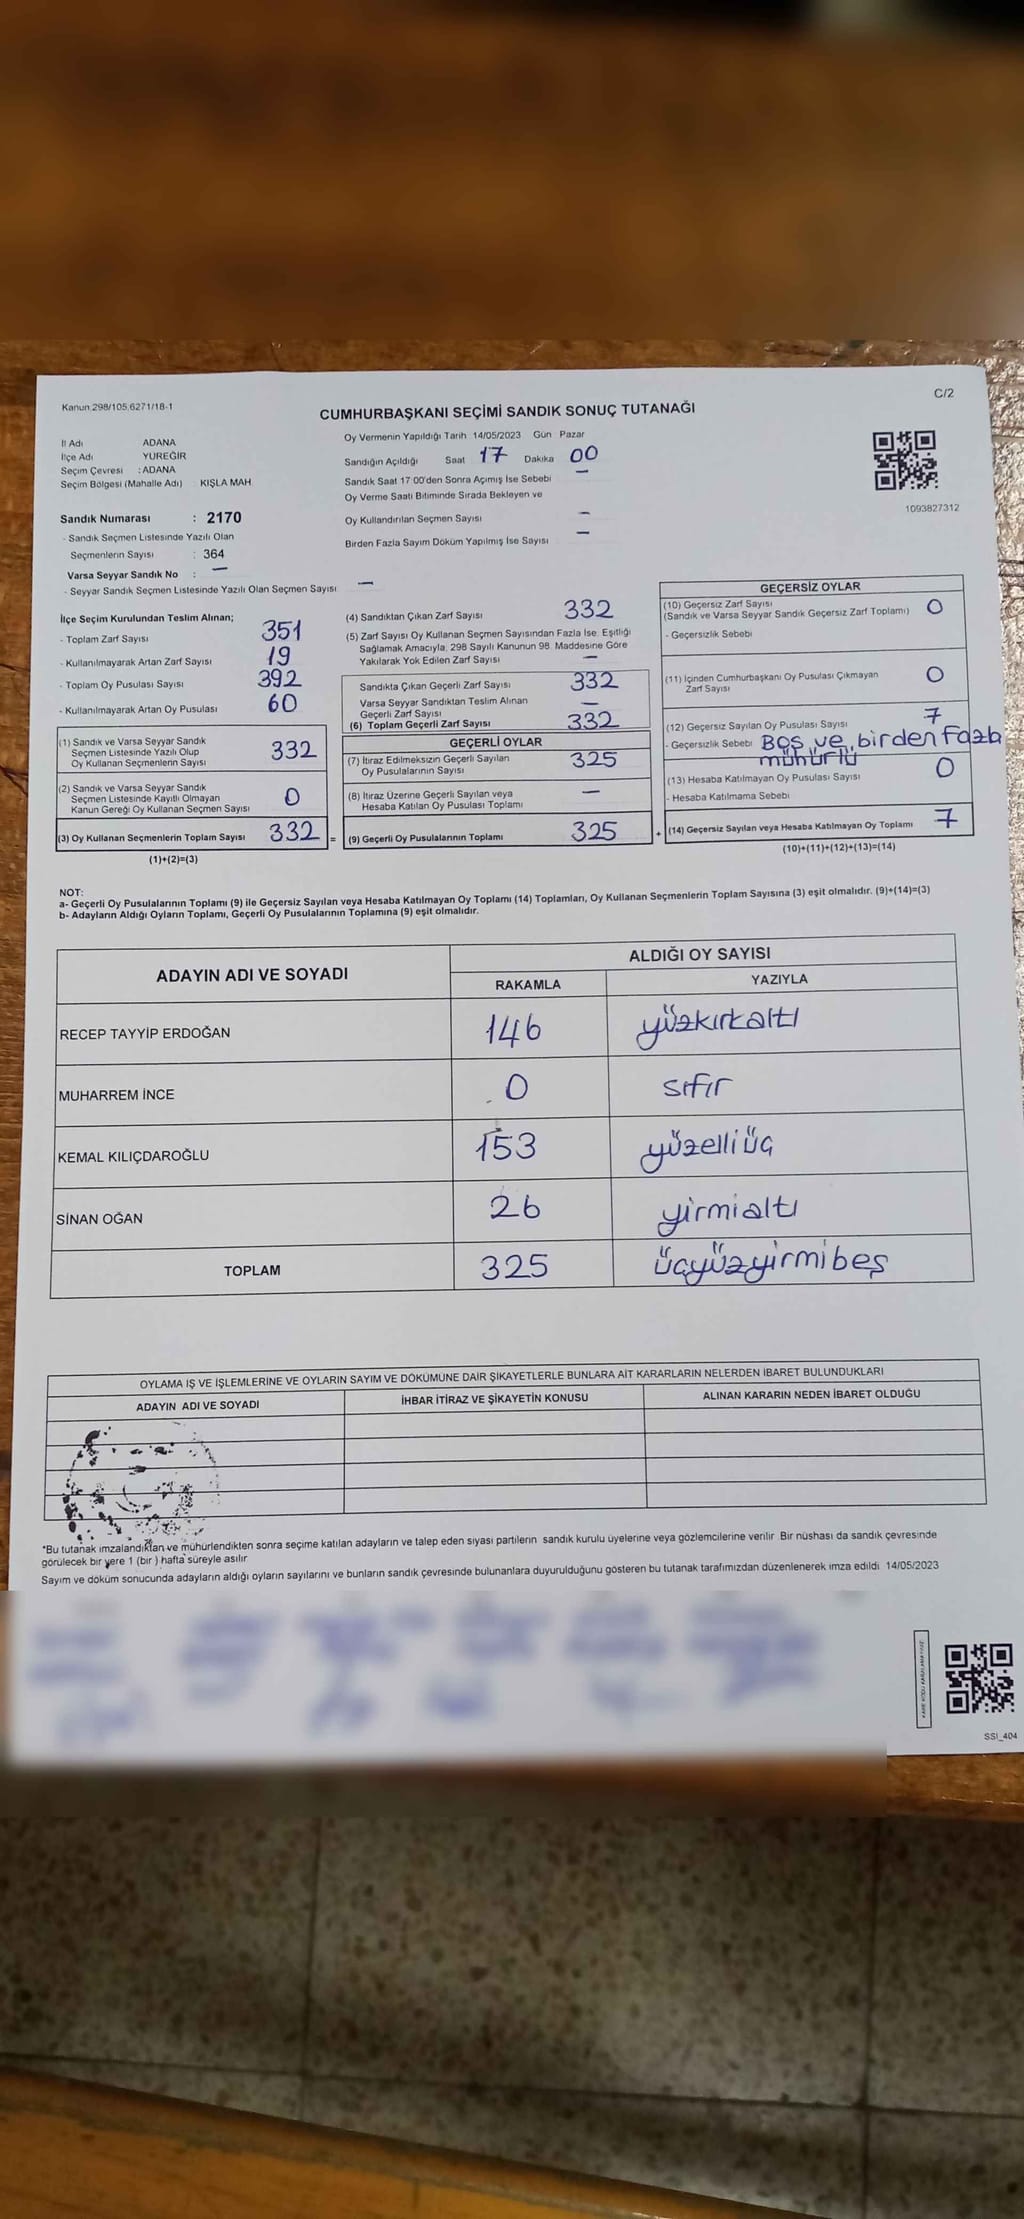 Kanun 298/105,6271/18-1
C/2
CUMHURBAŞKANI SEÇİMİ SANDIK SONUÇ TUTANAĞI
İl Adı ADANA
İlçe Adı YÜREĞİR
Seçim Çevresi : ADANA
Seçim Bölgesi (Mahalle Adı) KIŞLA MAH
Oy Vermenin Yapıldığı Tarih 14/05/2023 Gün Pazar
Sandığın Açıldığı Saat 17 Dakika 00
Sandık Saat 17 00'den Sonra Açımış İse Sebebi —
Oy Verme Saati Bitiminde Sırada Bekleyen ve
Oy Kullandırılan Seçmen Sayısı —
Birden Fazla Sayım Döküm Yapılmış İse Sayısı —
1093827312
Sandık Numarası : 2170
- Sandık Seçmen Listesinde Yazılı Olan
Seçmenlerin Sayısı : 364
Varsa Seyyar Sandık No : —
- Seyyar Sandık Seçmen Listesinde Yazılı Olan Seçmen Sayısı —
İlçe Seçim Kurulundan Teslim Alınan;
- Toplam Zarf Sayısı 351
- Kullanılmayarak Artan Zarf Sayısı 19
- Toplam Oy Pusulası Sayısı 392
- Kullanılmayarak Artan Oy Pusulası 60
(1) Sandık ve Varsa Seyyar Sandık
Seçmen Listesinde Yazılı Olup
Oy Kullanan Seçmenlerin Sayısı 332
(2) Sandık ve Varsa Seyyar Sandık
Seçmen Listesinde Kayıtlı Olmayan
Kanun Gereği Oy Kullanan Seçmen Sayısı 0
(3) Oy Kullanan Seçmenlerin Toplam Sayısı 332 =
(1)+(2)=(3)
(4) Sandıktan Çıkan Zarf Sayısı 332
(5) Zarf Sayısı Oy Kullanan Seçmen Sayısından Fazla İse, Eşitliği
Sağlamak Amacıyla, 298 Sayılı Kanunun 98 Maddesine Göre
Yakılarak Yok Edilen Zarf Sayısı —
Sandıkta Çıkan Geçerli Zarf Sayısı 332
Varsa Seyyar Sandıktan Teslim Alınan
Geçerli Zarf Sayısı —
(6) Toplam Geçerli Zarf Sayısı 332
GEÇERLİ OYLAR
(7) İtiraz Edilmeksizin Geçerli Sayılan
Oy Pusulalarının Sayısı 325
(8) İtiraz Üzerine Geçerli Sayılan veya
Hesaba Katılan Oy Pusulası Toplamı —
(9) Geçerli Oy Pusulalarının Toplamı 325 +
GEÇERSİZ OYLAR
(10) Geçersiz Zarf Sayısı
(Sandık ve Varsa Seyyar Sandık Geçersiz Zarf Toplamı) 0
- Geçersizlik Sebebi
(11) İçinden Cumhurbaşkanı Oy Pusulası Çıkmayan
Zarf Sayısı 0
(12) Geçersiz Sayılan Oy Pusulası Sayısı 7
- Geçersizlik Sebebi Boş ve birden fazla
mühürlü
(13) Hesaba Katılmayan Oy Pusulası Sayısı 0
- Hesaba Katılmama Sebebi
(14) Geçersiz Sayılan veya Hesaba Katılmayan Oy Toplamı 7
(10)+(11)+(12)+(13)=(14)
NOT:
a- Geçerli Oy Pusulalarının Toplamı (9) ile Geçersiz Sayılan veya Hesaba Katılmayan Oy Toplamı (14) Toplamları, Oy Kullanan Seçmenlerin Toplam Sayısına (3) eşit olmalıdır. (9)+(14)=(3)
b- Adayların Aldığı Oyların Toplamı, Geçerli Oy Pusulalarının Toplamına (9) eşit olmalıdır.
ADAYIN ADI VE SOYADI
ALDIĞI OY SAYISI
RAKAMLA YAZIYLA
RECEP TAYYİP ERDOĞAN 146 yüzkırkaltı
MUHARREM İNCE 0 sıfır
KEMAL KILIÇDAROĞLU 153 yüzelliüç
SİNAN OĞAN 26 yirmialtı
TOPLAM 325 üçyüzyirmibeş
OYLAMA İŞ VE İŞLEMLERİNE VE OYLARIN SAYIM VE DÖKÜMÜNE DAİR ŞİKAYETLERLE BUNLARA AİT KARARLARIN NELERDEN İBARET BULUNDUKLARI
ADAYIN ADI VE SOYADI İHBAR İTİRAZ VE ŞİKAYETİN KONUSU ALINAN KARARIN NEDEN İBARET OLDUĞU
*Bu tutanak imzalandıktan ve mühürlendikten sonra seçime katılan adayların ve talep eden siyasi partilerin sandık kurulu üyelerine veya gözlemcilerine verilir Bir nüshası da sandık çevresinde
görülecek bir yere 1 (bir ) hafta süreyle asılır
Sayım ve döküm sonucunda adayların aldığı oyların sayılarını ve bunların sandık çevresinde bulunanlara duyurulduğunu gösteren bu tutanak tarafımızdan düzenlenerek imza edildi 14/05/2023
SSI_404